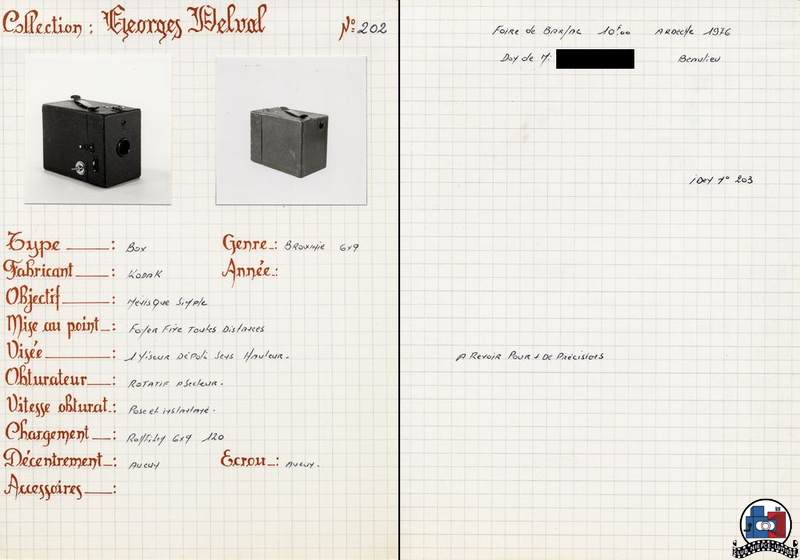 Collection : Georges Delval N° 202
Type : Box Genre : Brownie 6x9
Fabricant : Kodak Année :
Objectif : Menisque Simple
Mise au point : Foyer Fixe Toutes Distances
Visée : 1 Viseur Dépoli Sens Hauteur.
Obturateur : Rotatif à Secteur.
Vitesse obturat. : Pose et instantané.
Chargement : Rollfilm 6x9 120
Décentrement : Aucun Ecrou : Aucun.
Accessoires :
Foire de Barjac 10F,00 Ardeche 1976
Don de M: Beaulieu
idem n° 203
A Revoir Pour + De Précisions